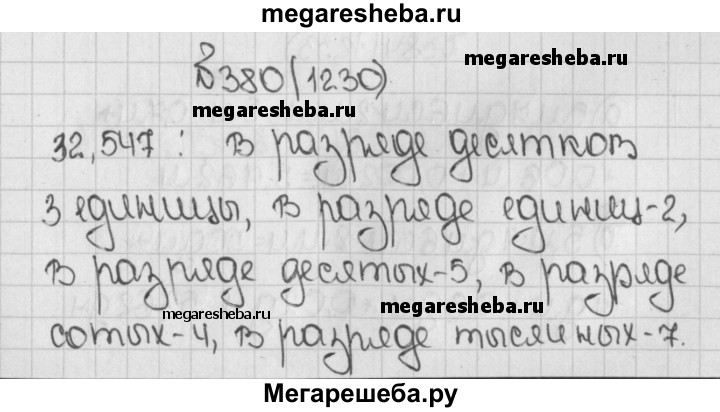 megaresheba.ru
№380(1230)
megaresheba.ru
megaresheba.ru
32,547: в разряде десятков
3 единицы, в разряде единиц-2,
в разряде десятых-5, в разряде
megaresheba.ru
megaresheba.ru
сотых-4, в разряде тысячных-7.
Мегарешеба.ру